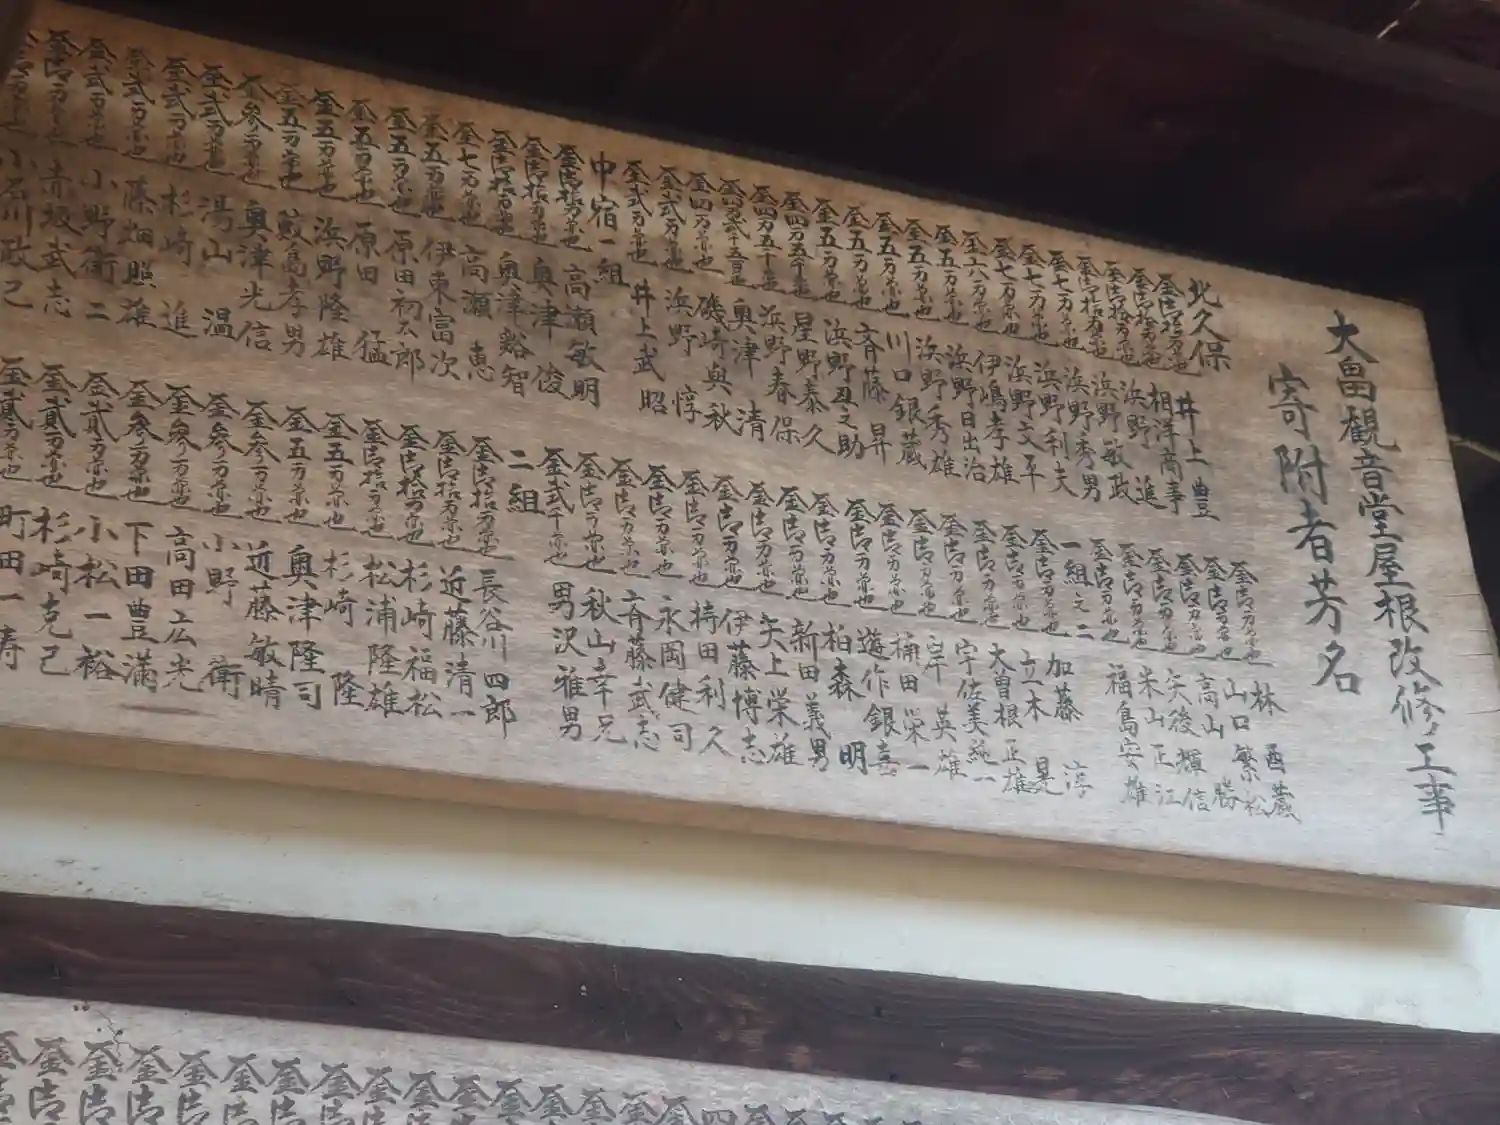 大畠観音堂屋根改修工事
寄附者芳名
北久保
金壱拾万円也 井上豊
金壱拾万円也 相洋商事
金壱拾万円也 浜野進
金壱拾万円也 浜野敏政
金七万円也 浜野秀男
金七万円也 浜野利夫
金七万円也 浜野文平
金六万円也 伊嶋孝雄
金五万円也 浜野日出治
金五万円也 浜野秀雄
金五万円也 川口銀蔵
金五万円也 斉藤昇
金五万円也 浜野丑之助
金四万五千円也 星野泰久
金四万五千円也 浜野春保
金四万弐千五百円也 奥津清
金四万円也 磯崎與秋
金弐万円也 浜野惇
金弐万円也 井上武昭
中宿一組
金壱拾万円也 高瀬敏明
金壱拾万円也 奥津俊
金壱拾万円也 奥津谿智
金七万円也 高瀬恵
金五万円也 伊東富次
金五万円也 原田初五郎
金五万円也 原田猛
金五万円也 浜野隆雄
金五万円也 鮫島孝男
金参万円也 奥津光信
金弐万円也 湯山温
金弐万円也 杉崎進
金弐万円也 藤畑照雄
金弐万円也 小野衛二
金壱万円也 赤坂武志
小名川政己
金壱万円也 林酉蔵
金壱万円也 山口繁松
金壱万円也 高山勝
金壱万円也 矢後輝信
金壱万円也 米山正江
金壱万円也 福島安雄
一組之二
金壱万円也 加藤淳
金壱万円也 立木晃
金壱万円也 大曽根正雄
金壱万円也 宇佐美純一
金壱万円也 岸英雄
金壱万円也 楠田栄一
金壱万円也 遊作銀喜
金壱万円也 柏森明
金壱万円也 新田義男
金壱万円也 矢上栄雄
金壱万円也 伊藤博志
金壱万円也 持田利久
金壱万円也 永岡健司
金壱万円也 斉藤武志
金壱万円也 秋山幸兄
金弐千円也 男沢雅男
二組
金壱拾万円也 長谷川四郎
金壱拾万円也 近藤清一
金壱拾万円也 杉崎福松
金壱拾万円也 松浦隆雄
金五万円也 杉崎隆
金五万円也 奥津隆司
金参万円也 近藤敏晴
金参万円也 小野衛
金参万円也 高田広光
金参万円也 下田豊満
金貳万円也 小松一裕
金貳万円也 杉崎克己
金貳万円也 町田一寿